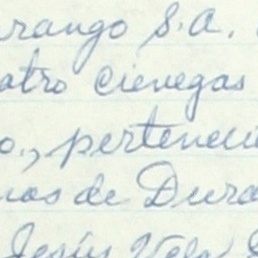 rango S.A.
atro Cienegas
o., perteneci
nas de Dura
Jesús Vela